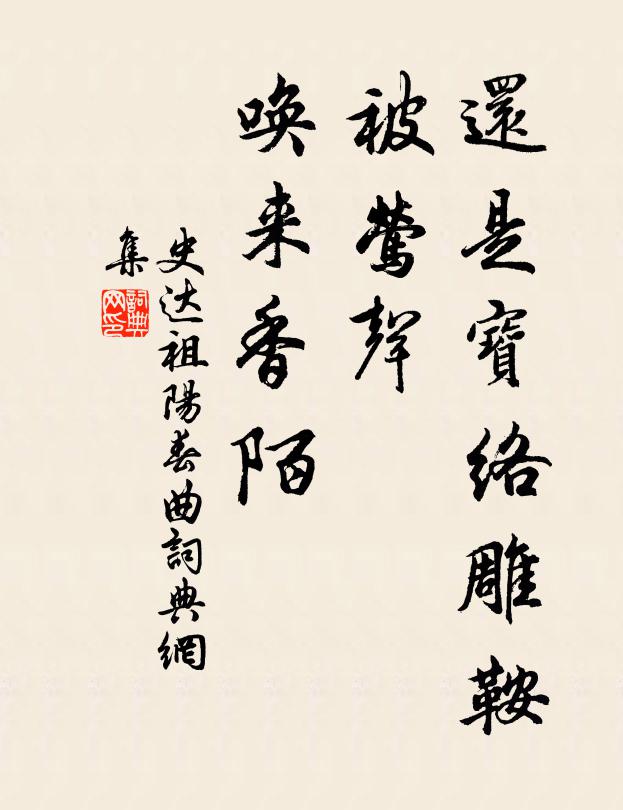 還是寶絡雕鞍
被鶯聲
喚来香陌
史达祖陽春曲詞典網
集
詞典
网印